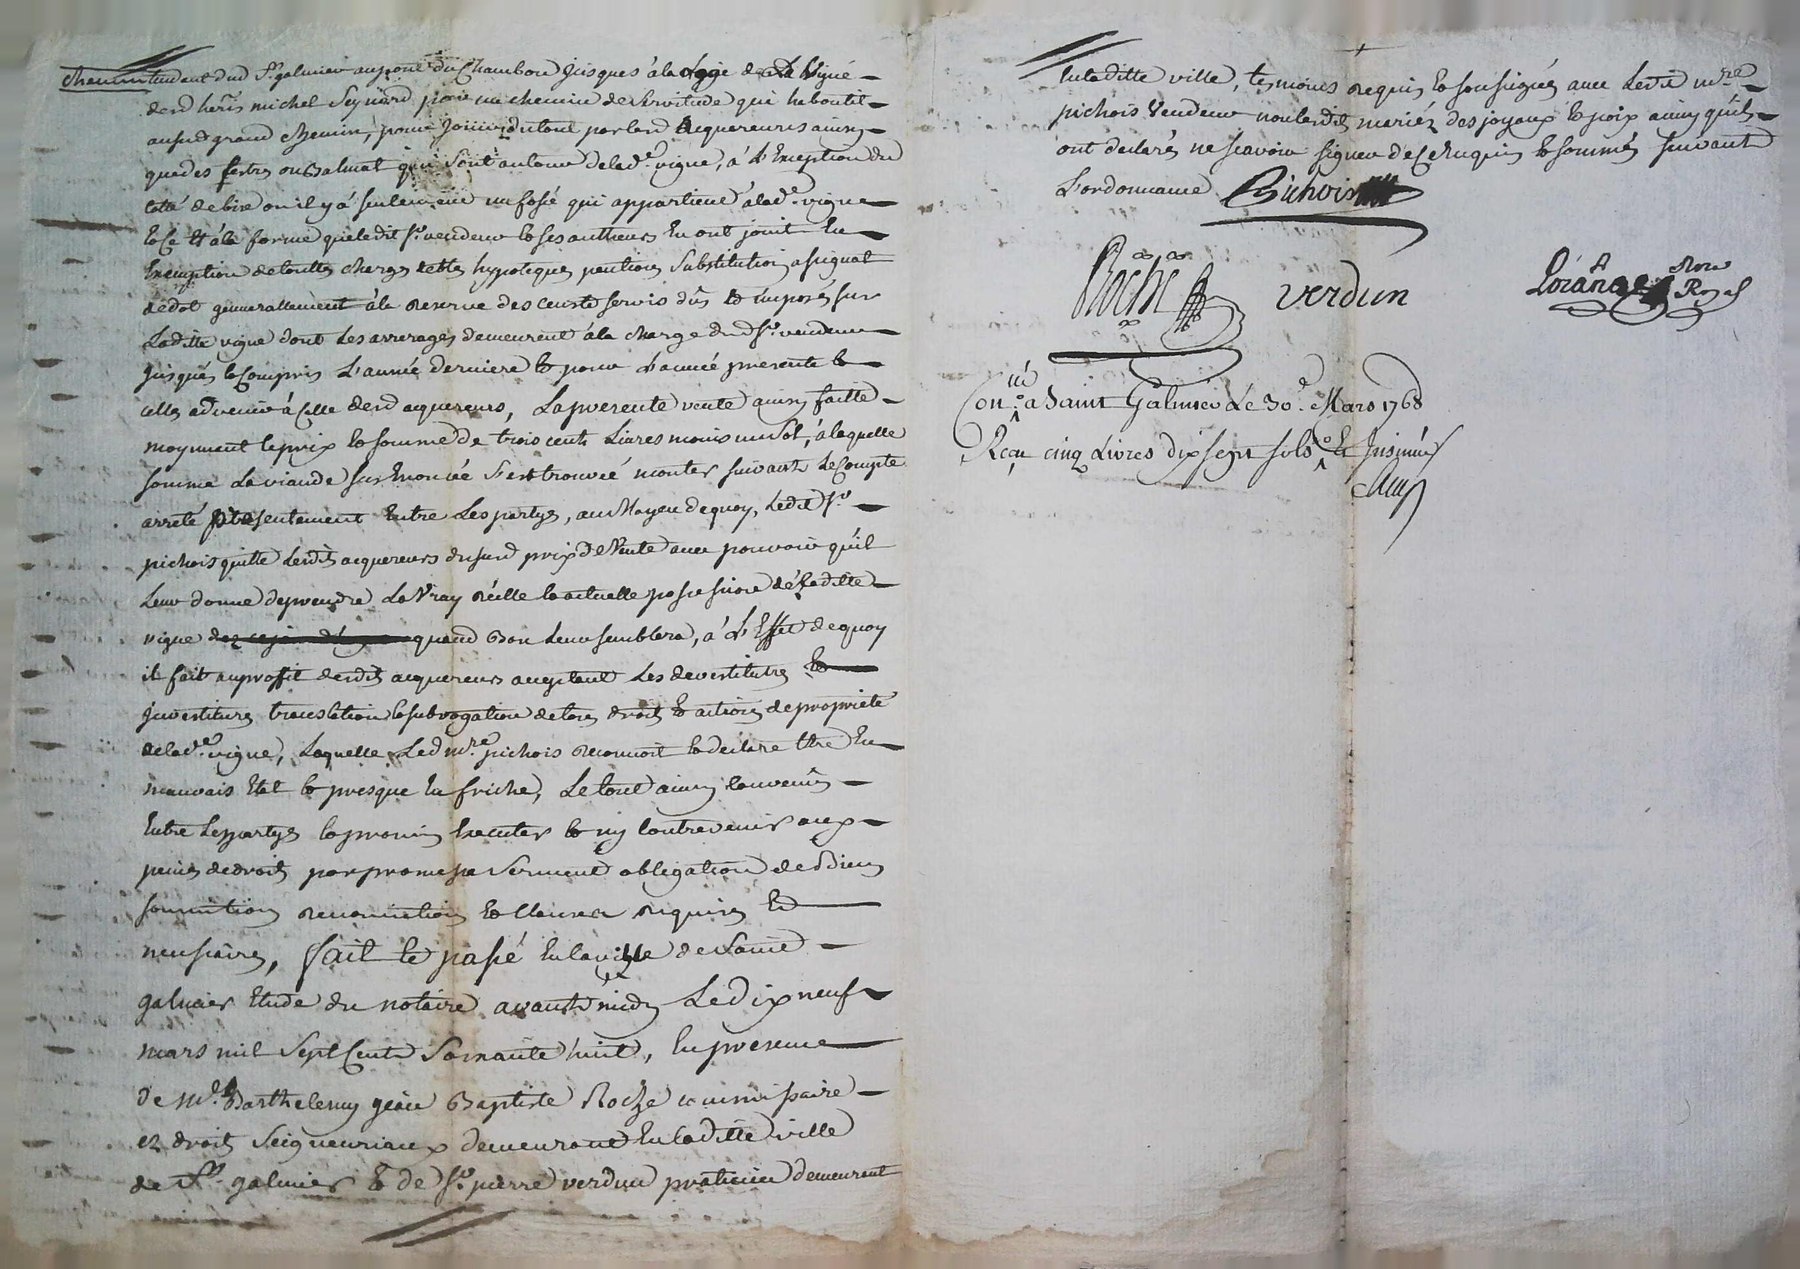 chemin tendent dud St galmier au pont du Chambon jusques à la loge de la vigne
desd hers michel Seynard pour un chemin de servitude qui haboutit
ausud grand chemin, pour jouir du tout par lesd acquereurs ainsy
que des fertres ou Balmat qui sont autour de lade vigne, à L'Exception du
coté de bize ou il y à seulement un fossé qui appartient à lad.e vigne
le tt à la forme que ledit sr vendeur & ses autheurs En ont jouit En
Exemption de touttes charges debtes hypoteques pentions Substitution assignat
de dot generallement à la reserve des cens & servis dûs & imposés sur
Laditte vigne dont les arrerages demeurent à la charge dud sr vendeur
jusqués & compris L'année derniere & pour L'année presente &
celles advenir à Celle desd acquereurs, La presente vente ainsy faitte
moyennent le prix & somme de trois cents Livres moins un sol, à laquelle
somme La viande sus Enoncée s'est trouvée monter suivant le Compte
arreté présentement Entre Les partys, au Moyen de quoy, Ledit sr
pichois quitte lesdits acquereurs du susd prix de Vente avec pouvoir qu'il
Leur donne de prendre La Vray réelle & actuelle possession de Laditte
vigne quand Bon leur semblera, à L'Effet de quoy
il fait au proffit desdits acquereurs acceptant Les devestitures &
Jnvestitures translation & subrogation de tous droits & actions de proprieté
de lad.e vigne, Laquelle Led mre pichois reconnoit & declare Etre En
mauvais Etat & presque En friche, Le tout ainsy convenu
Entre Les partys & promis Executer & ny Contrevenir aux
peines de droits par promesse Serment obligation de Biens
soumition renonciation & Clauses requises Et
necessaires, fait & passé En la ville de saint
galmier Etude du notaire avant midy Le dix neuf
mars mil Sept Cents Soixante huit, En presence
de Mr Barthelemy jean Baptiste Roche commissaire
ez droits Seigneuriaux demeurant En laditte ville
de St galmier & de sr pierre verdun praticien demeurent
En laditte ville, temoins requis & soussignés avec Ledit mre
pichois Vendeur non lesdits mariéz des joyaux & poix ainsy qu'ils
ont declarés ne sçavoir signer de Ce Enquis & sommés suivant
L'ordonnance Pichois
Roche verdun Loranges Nore Royal
Con.lé a Saint Galmier Le 30.e Mars 1768
Reçu cinq Livres dix sept sols & Jnsinué